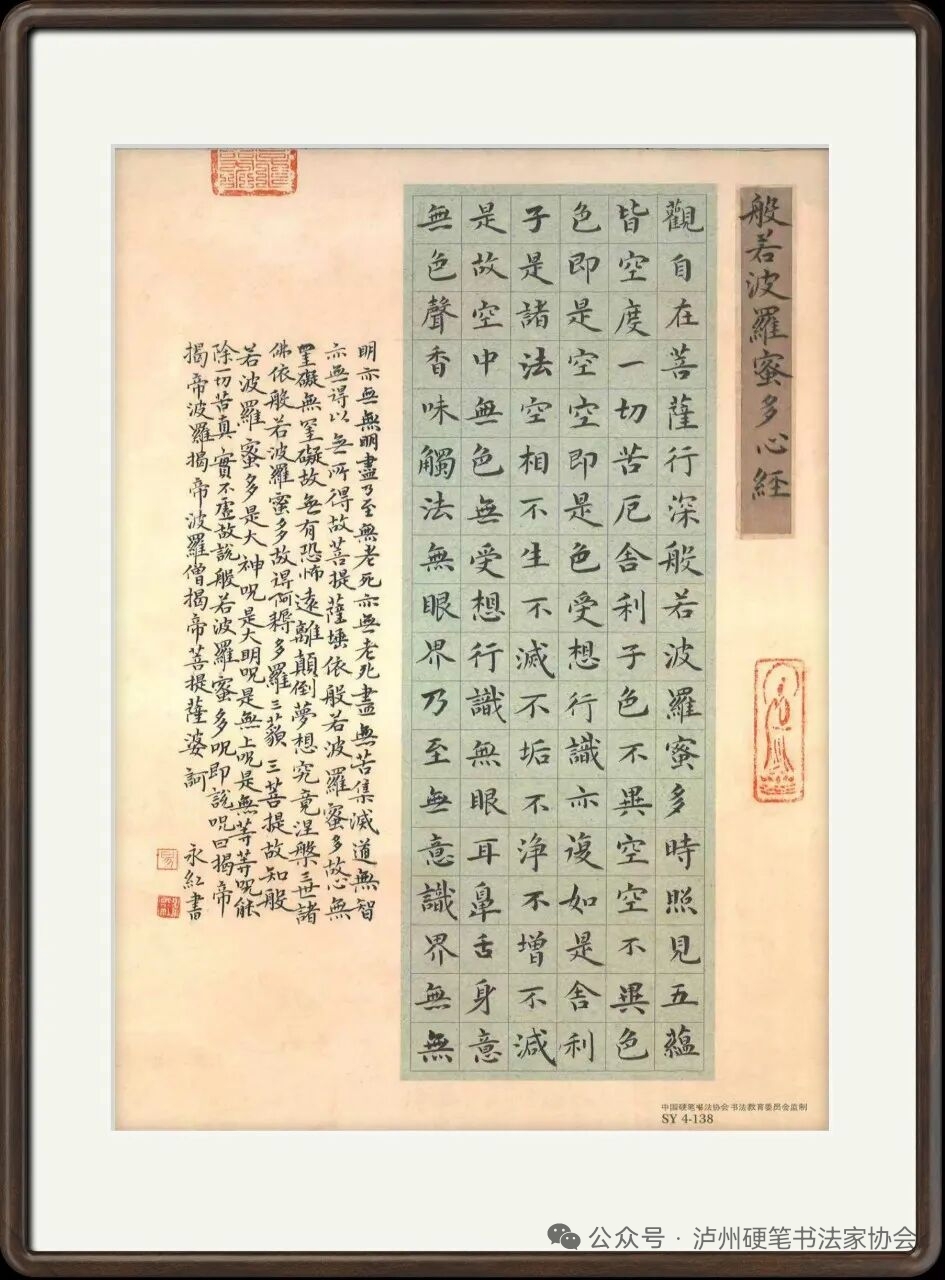 般若波羅蜜多心経
觀自在菩薩行深般若波羅蜜多時照見五蘊
皆空度一切苦厄舍利子色不異空空不異色
色即是空空即是色受想行識亦復如是舍利
子是諸法空相不生不滅不垢不浄不增不減
是故空中無色無受想行識無眼耳鼻舌身意
無色聲香味觸法無眼界乃至無意識界無無
明亦無無明盡乃至無老死亦無老死盡無苦集滅道無智
亦無得以無所得故菩提薩埵依般若波羅蜜多故心無
罣礙無罣礙故無有恐怖遠離顛倒夢想究竟涅槃三世諸
佛依般若波羅蜜多故得阿耨多羅三藐三菩提故知般
若波羅蜜多是大神呪是大明呪是無上呪是無等等呪能
除一切苦真實不虛故說般若波羅蜜多呪即說呪曰揭帝
揭帝波羅揭帝波羅僧揭帝菩提薩婆訶 永紅書
中国硬笔书法协会书法教育委员会监制
SY 4-138
公众号·泸州硬笔书法家协会